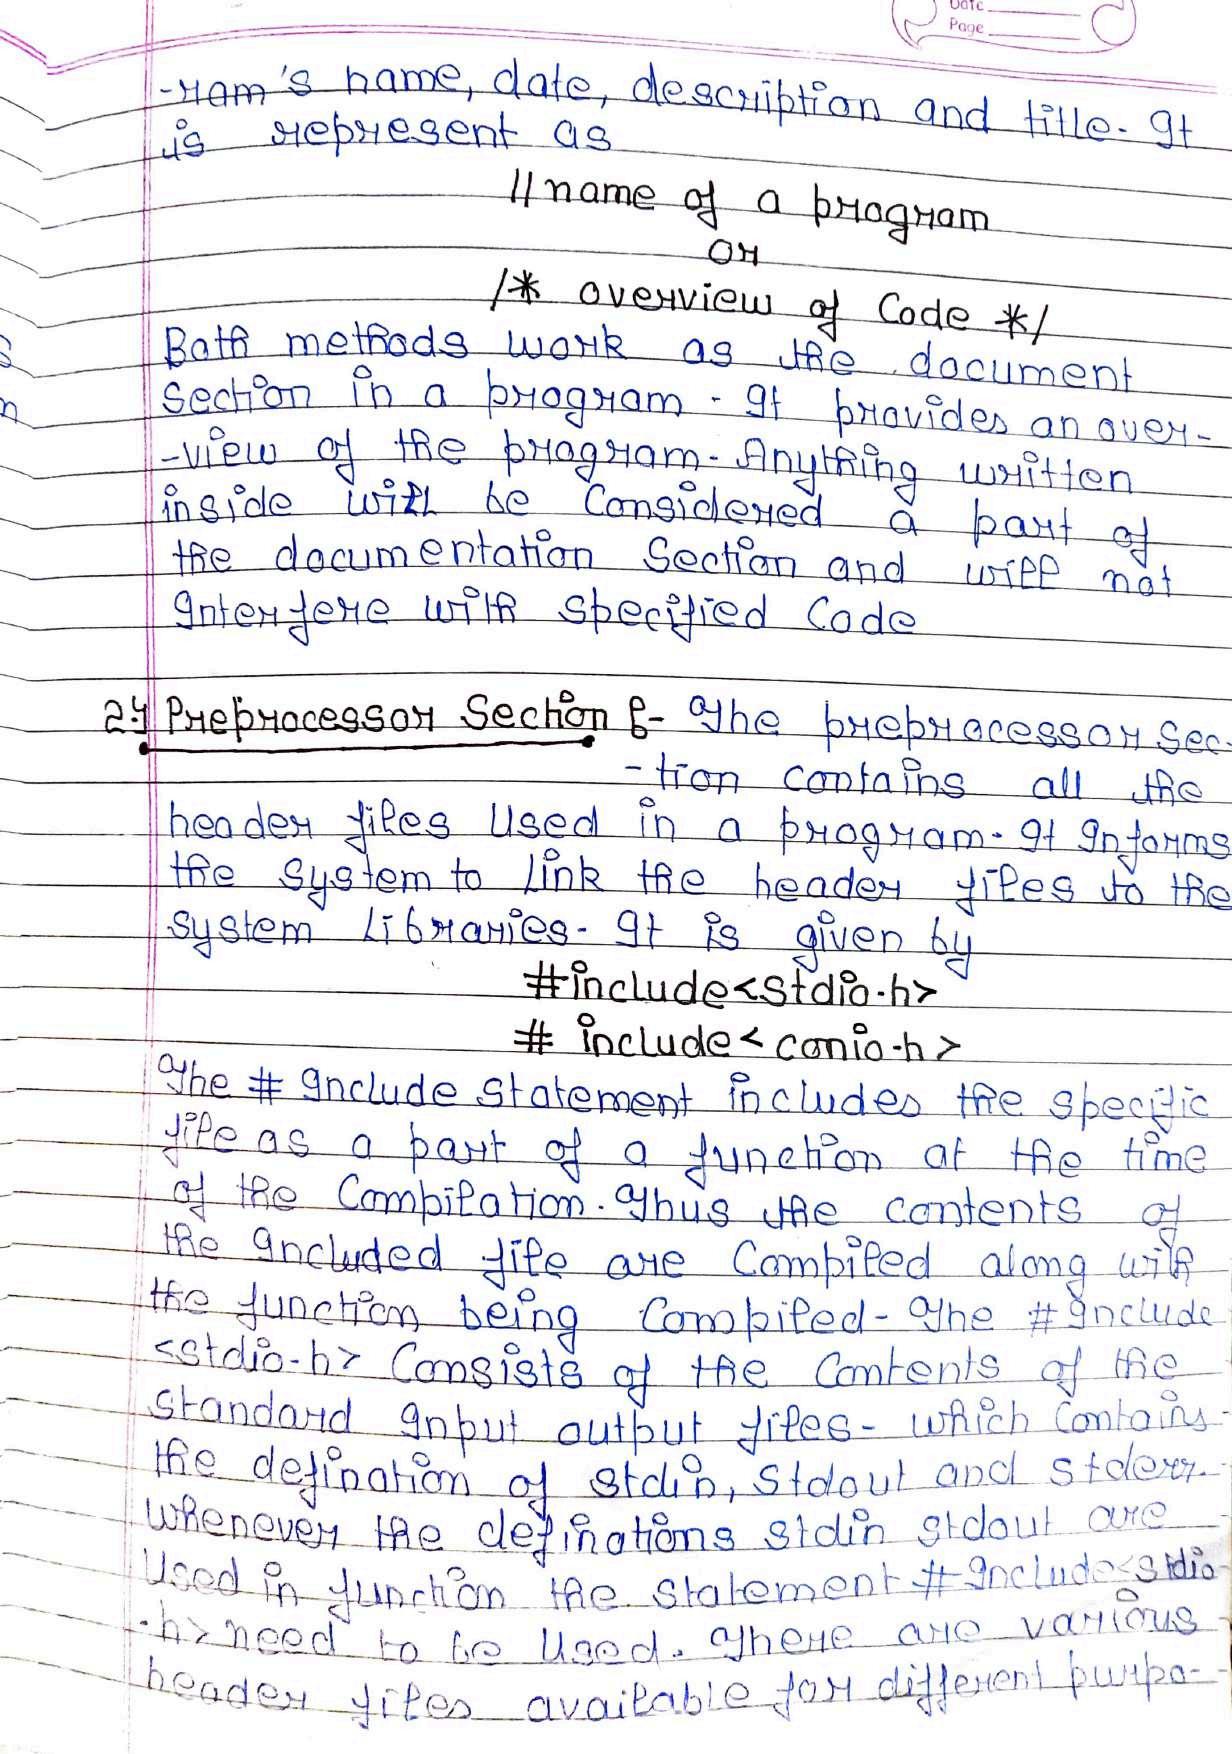 Date
Page
-ram's name, date, description and title. It
is represent as
//name of a program
or
/* overview of Code */
Both methods work as the document
Section in a program. It provides an over-
-view of the program. Anything written
inside will be Considered a part of
the documentation Section and will not
Interfere with specified Code
2.} Preprocessor Section :- The preprocessor Sec-
-tion contains all the
header files Used in a program. It Informs
the System to Link the header files to the
system Libraries. It is given by
#include<stdio.h>
# include<conio.h>
The # Include Statement includes the specific
file as a part of a function at the time
of the Compilation. Thus the contents of
the Included file are Compiled along with
the function being Compiled. The # Include
<stdio.h> Consists of the Contents of the
Standard Input output files. which Contains
the defination of stdin, stdout and stderr.
Whenever the definations stdin stdout are
Used in function the statement # Include<stdio
.h> need to be Used. There are various
header files available for different purpo-
s
n